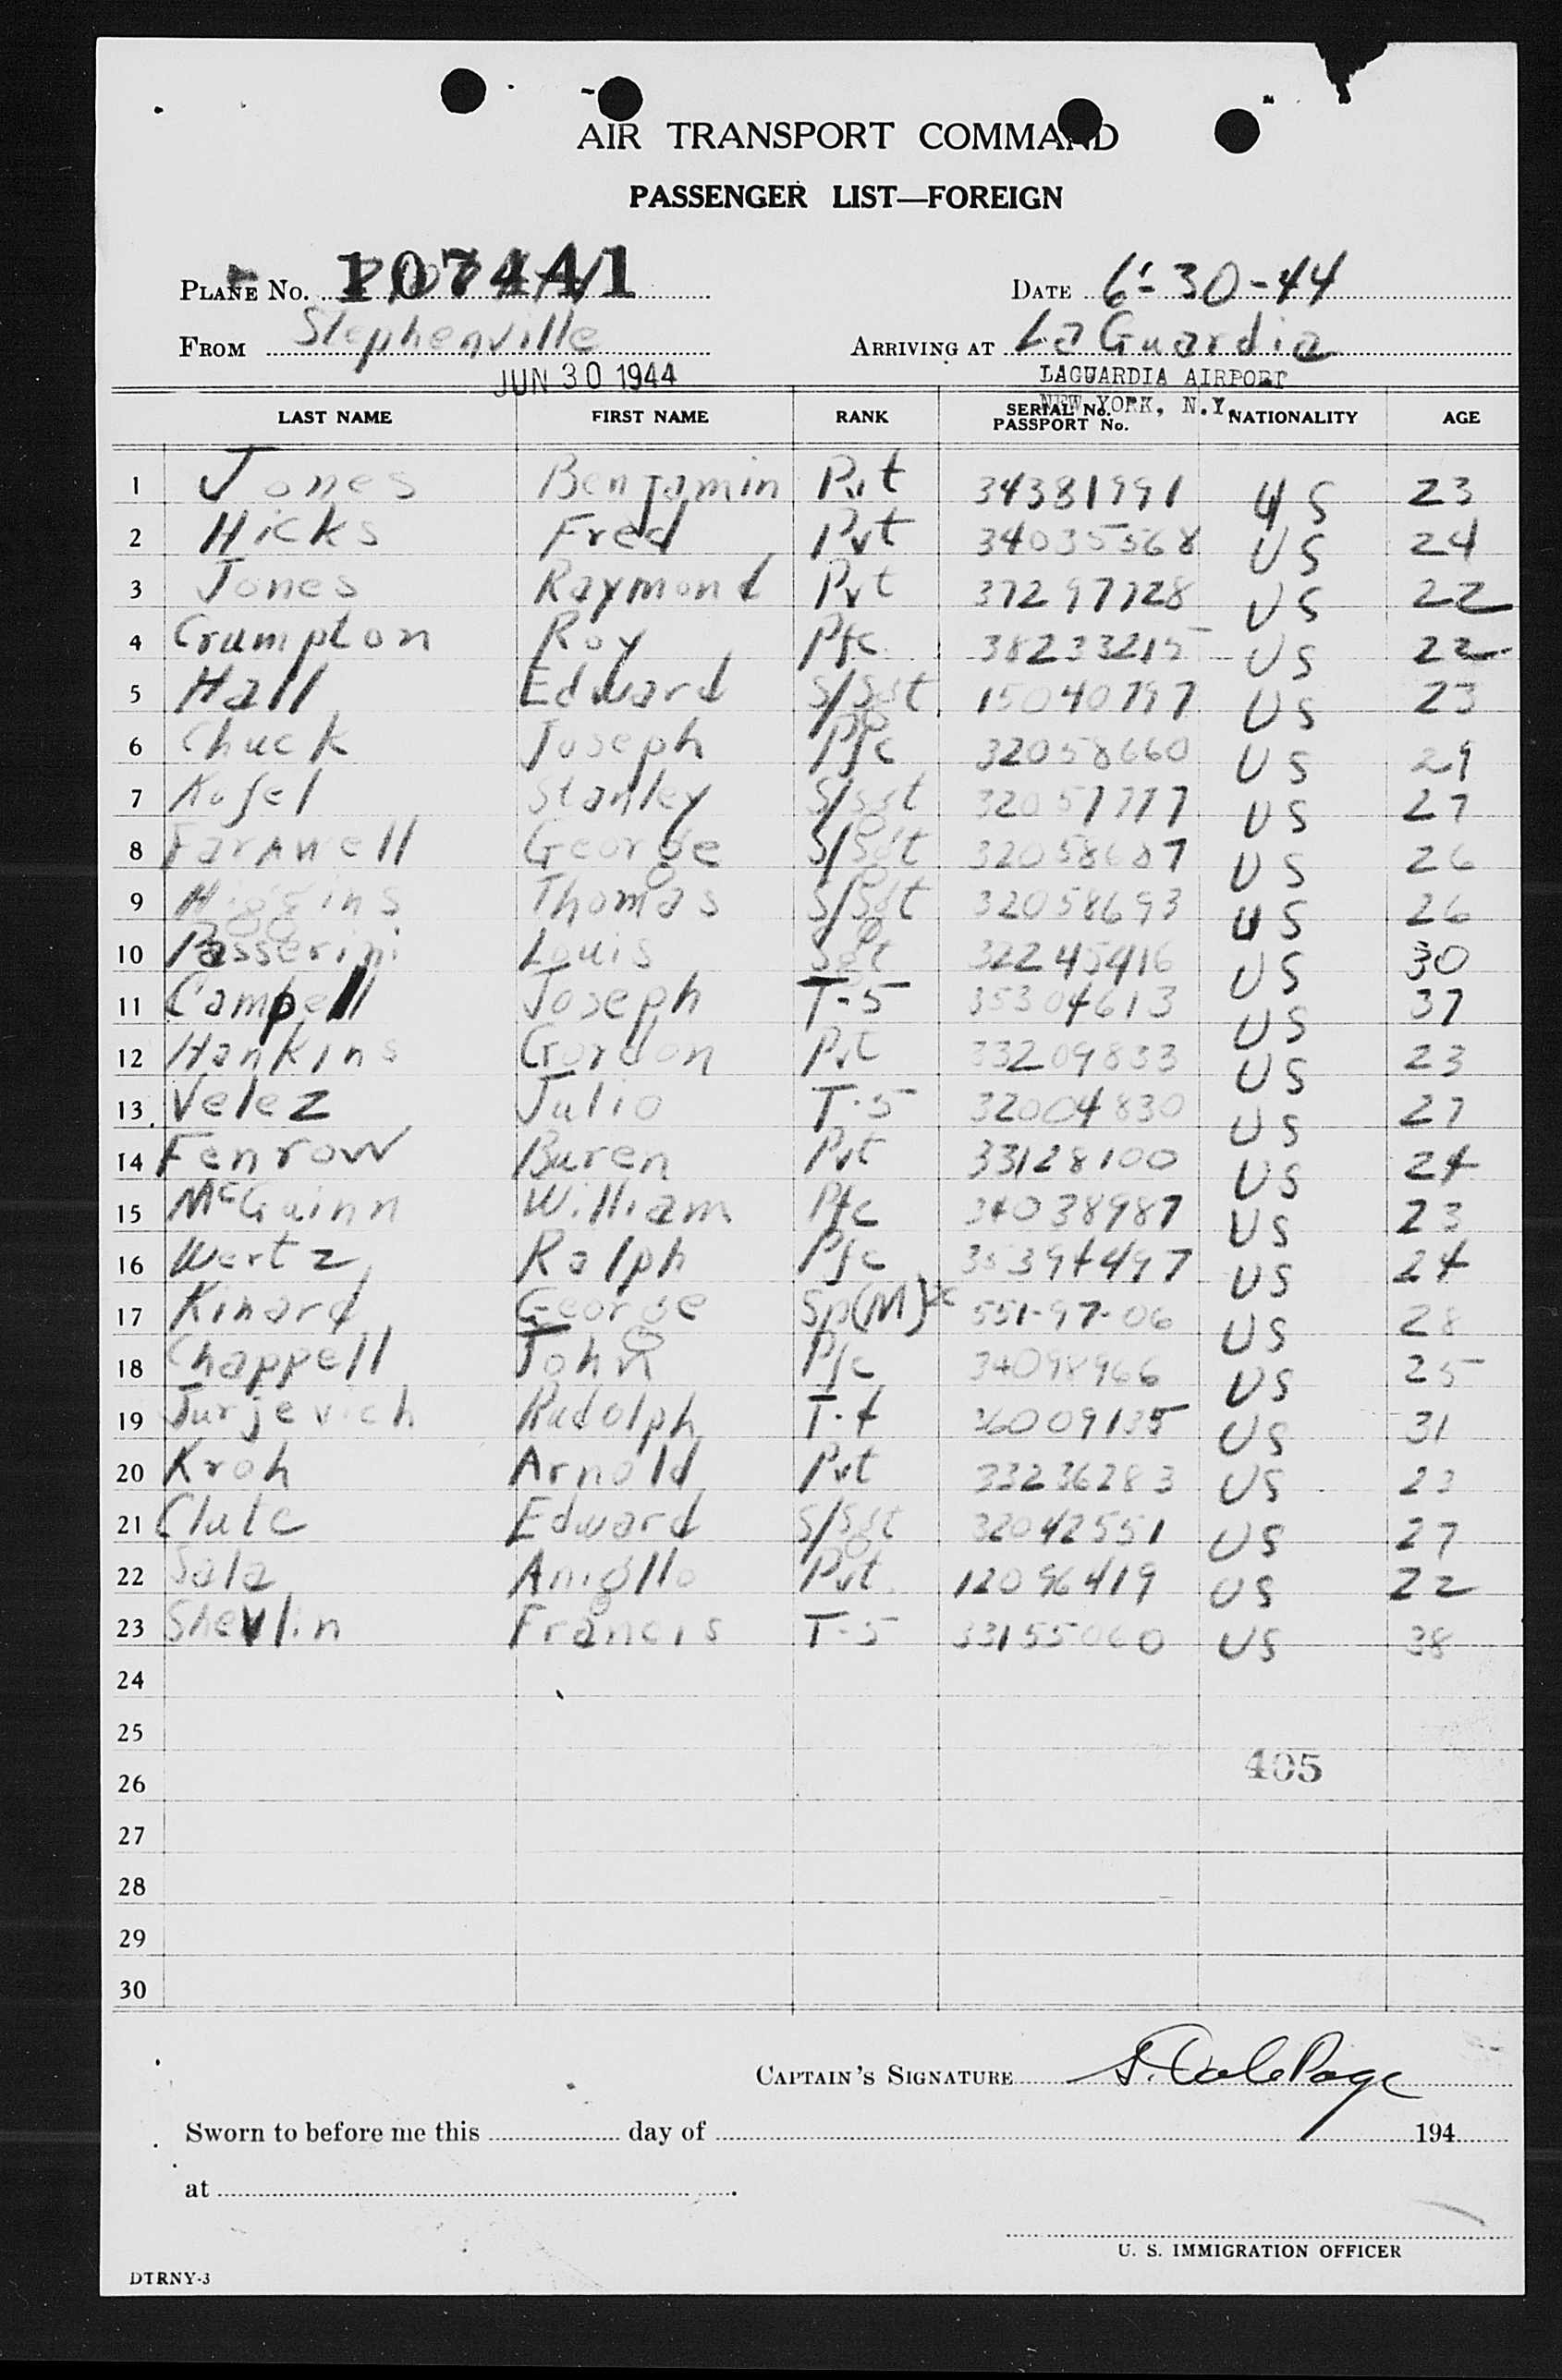 AIR TRANSPORT COMMAND
PASSENGER LIST—FOREIGN
PLANE No. 1074A1 DATE 6-30-44
FROM Stephenville ARRIVING AT La Guardia
JUN 30 1944 LAGUARDIA AIRPORT
NEW YORK, N.Y.
LAST NAME FIRST NAME RANK SERIAL No. PASSPORT No. NATIONALITY AGE
1 Jones Benjamin Pvt 34381991 US 23
2 Hicks Fred Pvt 34035568 US 24
3 Jones Raymond Pvt 37297728 US 22
4 Crumpton Roy Pfc 38233215 US 22
5 Hall Edward S/Sgt 15040797 US 23
6 Chuck Joseph Pfc 32058660 US 29
7 Kofel Stanley S/Sgt 32057777 US 27
8 Farnwell George S/Sgt 32058687 US 26
9 Higgins Thomas S/Sgt 32058693 US 26
10 Passerini Louis Sgt 32245416 US 30
11 Campell Joseph T-5 35304613 US 37
12 Hankins Gordon Pvt 33209833 US 23
13 Velez Julio T-5 32004830 US 27
14 Fenrow Buren Pvt 33128100 US 24
15 McGuinn William Pfc 34038987 US 23
16 Wertz Ralph Pfc 35394497 US 24
17 Kinard George Sp(M) 551-97-06 US 28
18 Chappell John Pfc 34098966 US 25
19 Jurjevich Rudolph T-4 36009135 US 31
20 Kroh Arnold Pvt 33236283 US 23
21 Clute Edward S/Sgt 32042551 US 27
22 Sala Aniello Pvt 12096419 US 22
23 Shevlin Francis T-5 33155060 US 38
24
25
26 405
27
28
29
30
CAPTAIN'S SIGNATURE S. Dale Page
Sworn to before me this day of 194
at
U. S. IMMIGRATION OFFICER
DTRNY-3